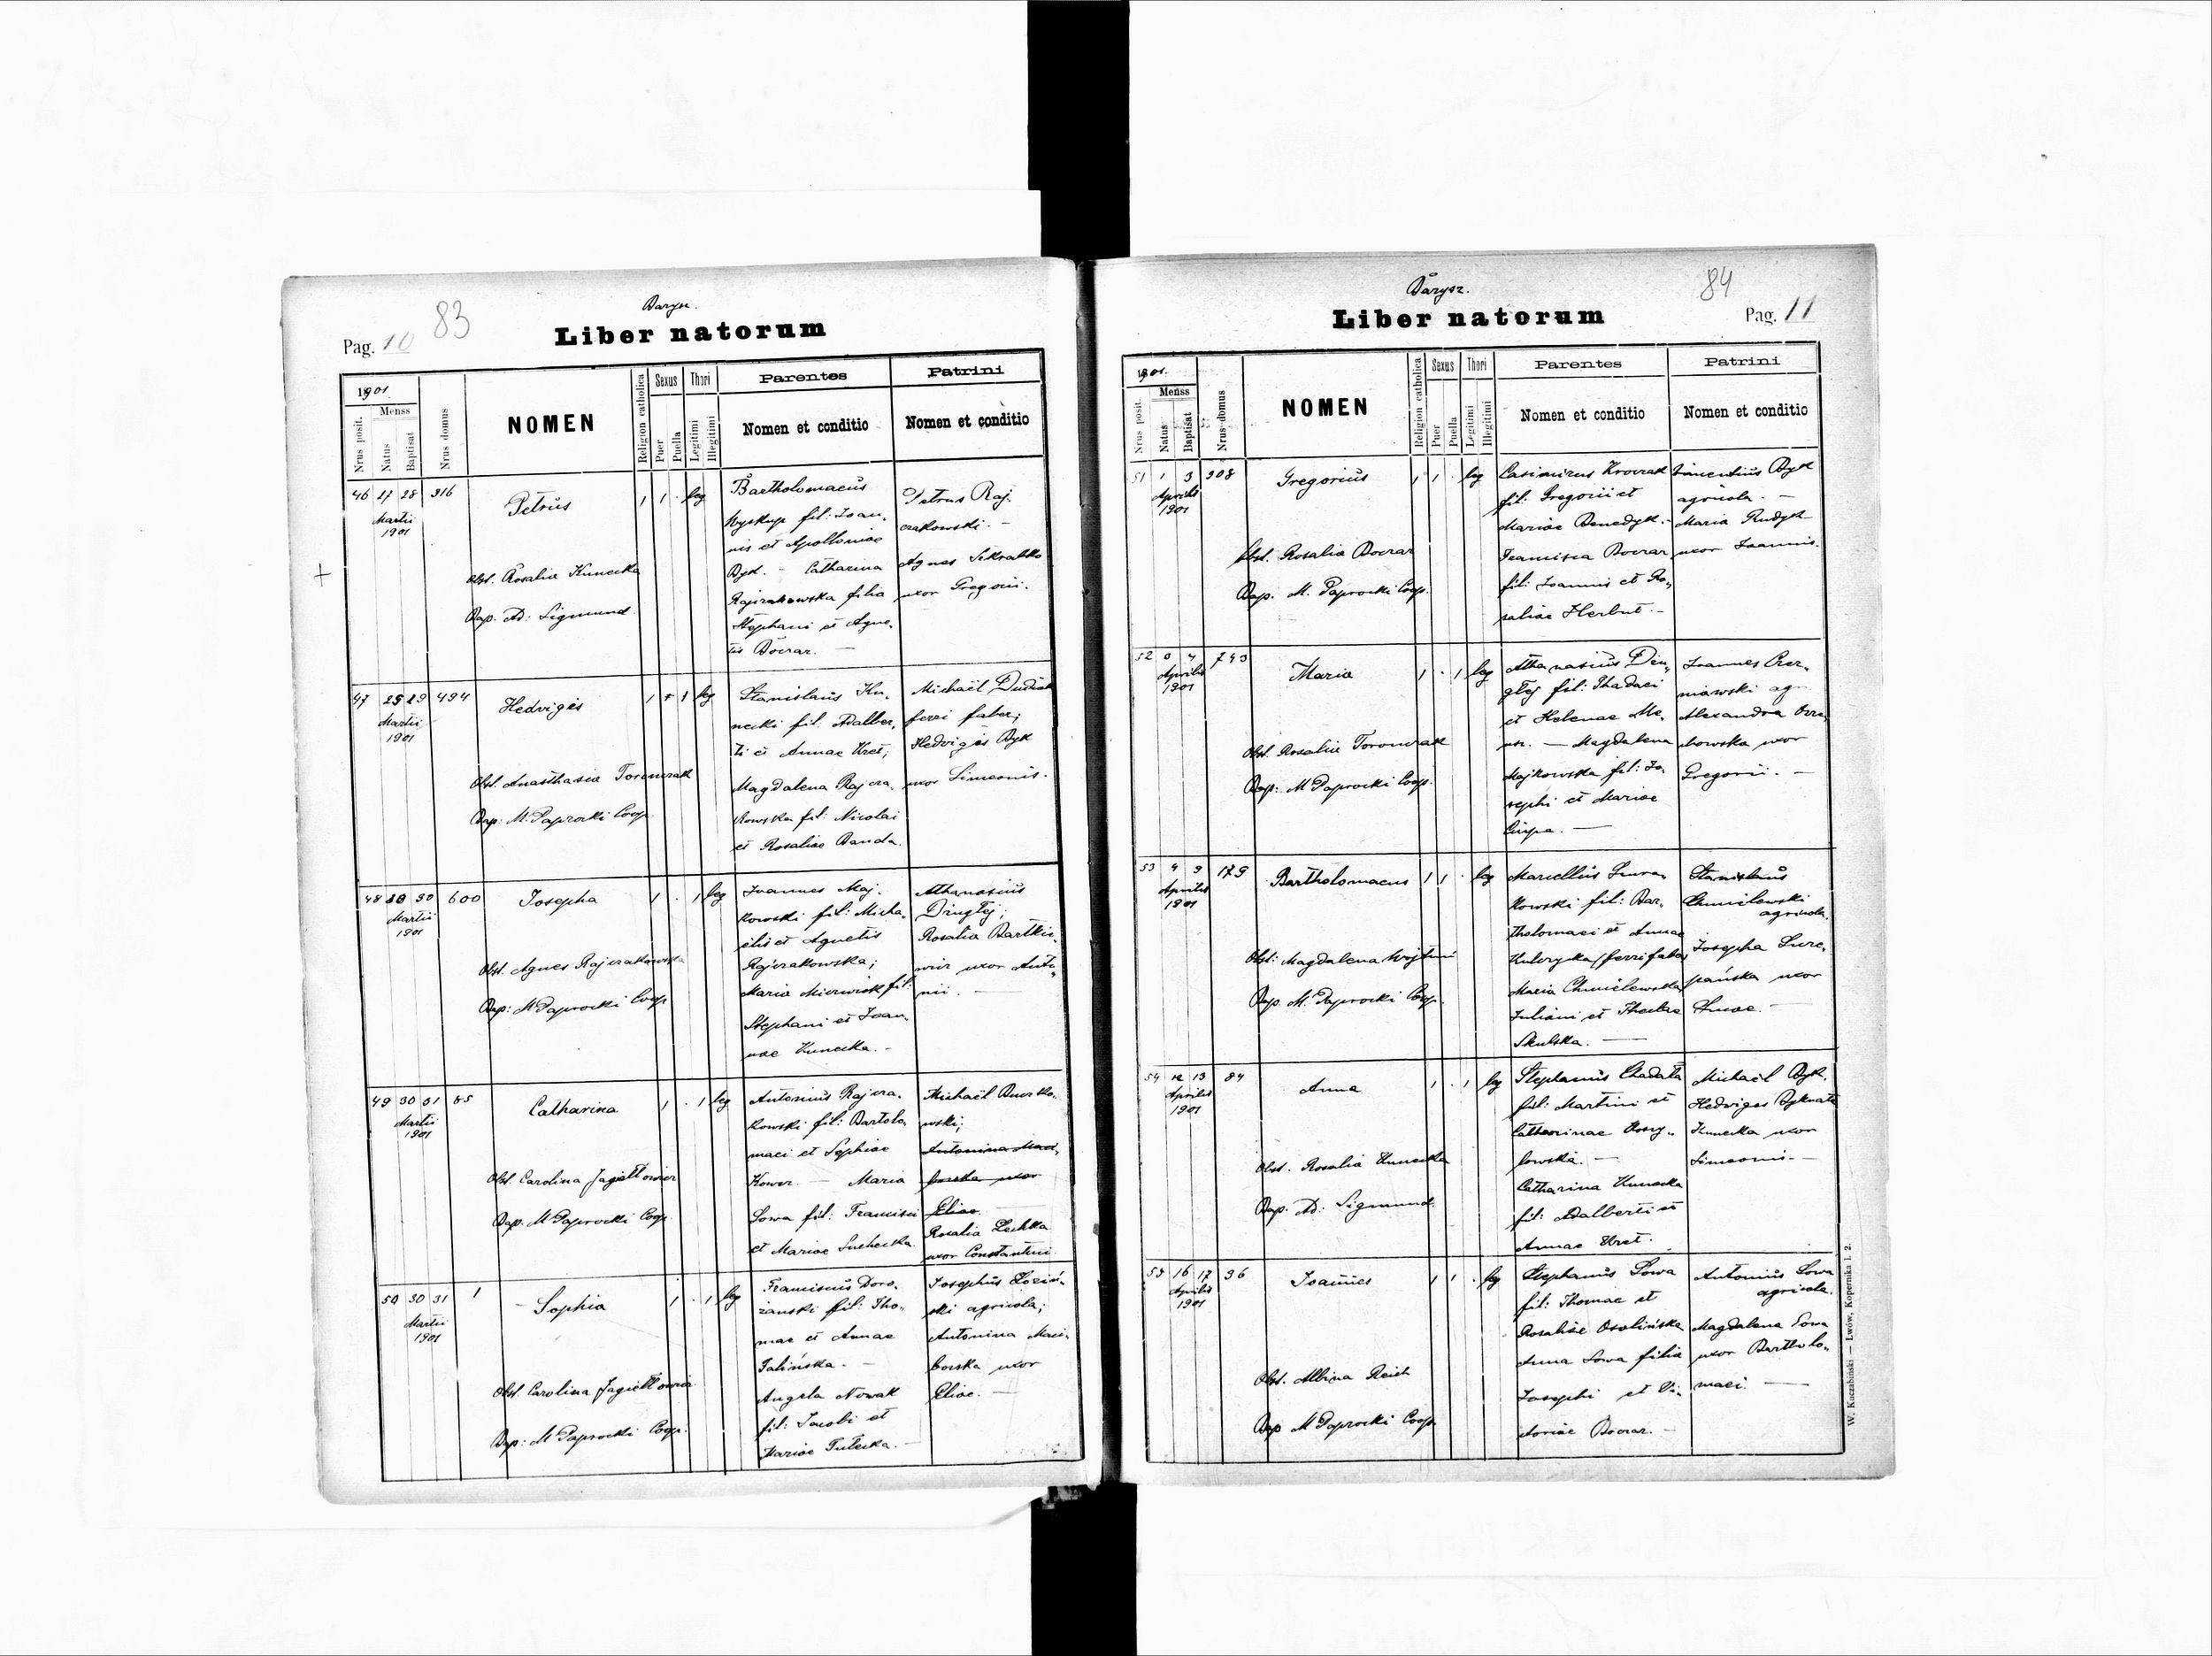 Barysz.
83
Pag. 10
Liber natorum
1901.
Menss
Nrus posit.
Natus
Baptisat
Nrus domus
NOMEN
Religion catholica
Sexus
Puer
Puella
Thori
Legitimi
Illegitimi
Parentes
Nomen et conditio
Patrini
Nomen et conditio
46 27 28 316
Martii
1901
Petrus
1 1 · leg
Obst. Rosalia Kunecka
Bap. Ad: Sigmund
Bartholomaeus
Wyskup fil: Joan-
nis et Apolloniae
Byk. — Catharina
Rajczakowska filia
Stephani et Agne-
tis Boczar. —
Petrus Raj-
czakowski. —
Agnes
uxor Gregorii.
47 25 29 494
Martii
1901
Hedviges
1 · 1 leg
Obst. Anasthasia Toronczak
Bap: M. Paprocki Coop.
Stanislaus Ku-
necki fil. Adalber-
ti et Annae Kret;
Magdalena Rajcza-
kowska fil: Nicolai
et Rosaliae Banda.
Michaël Dudiak
ferri faber;
Hedviges Byk
uxor Simeonis.
48 30 600
Martii
1901
Josepha
1 · 1 leg
Obst. Agnes Rajczakowska
Bap: M Paprocki Coop
Joannes Maj-
kowski fil: Micha-
ëlis et Agnetis
Rajczakowska;
Maria fil:
Stephani et Joan-
nae Kunecka. —
Athanasius
Dziugłej;
Rosalia Bartkie-
wicz uxor Anto-
nii. —
49 30 31 85
Martii
1901
Catharina
1 · 1 leg
Obst. Carolina Jagiełłowicz
Bap. M Paprocki Coop.
Antonius Rajcza-
kowski fil: Bartolo-
maei et Sophiae
Kower. — Maria
Sowa fil: Francisci
et Mariae Suchecka.
Michaël
wski;
Antonina Maci-
borska uxor
Eliae.
Rosalia Zechka
uxor Constantini
50 30 31 1
Martii
1901
Sophia
1 · 1 leg
Obst. Carolina Jagiełłowicz
Bap: M Paprocki Coop.
Franciscus Doro-
żanski fil: Tho-
mae et Annae
Jalińska. —
Angela Nowak
fil: Jacobi et
Mariae Tulecka. —
Josephus Łoziń-
ski agricola;
Antonina Maci-
borska uxor
Eliae. —
Barysz.
84
Liber natorum
Pag. 11
1901.
Menss
Nrus posit.
Natus
Baptisat
Nrus domus
NOMEN
Religion catholica
Sexus
Puer
Puella
Thori
Legitimi
Illegitimi
Parentes
Nomen et conditio
Patrini
Nomen et conditio
51 1 3 308
Aprilis
1901
Gregorius
1 1 · leg
Obst. Rosalia Boczar
Bap. M. Paprocki Coop.
Casimirus Krowrak
fil: Gregorii et
Mariae Benedyk. —
Francisca Boczar
fil: Joannis et Ro-
saliae Herbut. —
Vincentius Byk
agricola. —
Maria Rudyk
uxor Joannis.
52 4 743
Aprilis
1901
Maria
1 · 1 leg
Obst. Rosalia Toronczak
Bap: M Paprocki Coop.
Athanasius Dziu-
głej fil: Thadaei
et Helenae Me-
— Magdalena
Majkowska fil: Jo-
sephi et Mariae
Ciupa. —
Joannes Czer-
niawski agr.
Alexandra
bowska uxor
Gregorii. —
53 4 9 179
Aprilis
1901
Bartholomaeus
1 1 · leg
Obst: Magdalena Wojtuń
Bap. M. Paprocki Coop.
Marcellus
kowski fil: Bar-
tholomaei et Annae
Kulczycka (ferri faber)
Maria Chmielewska
Juliani et Theclae
Skulska. —
Stanislaus
Chmielewski
agricola.
Josepha
pańska uxor
Lucae. —
54 12 13 84
Aprilis
1901
Anna
1 · 1 leg
Obst. Rosalia Kunecka
Bap. Ad: Sigmund.
Stephanus Chadała
fil: Martini et
Catharinae
łowska. —
Catharina Kunecka
fil: Adalberti et
Annae Kret.
Michaël Byk.
Hedviges Byk nata
Kunecka uxor
Simeonis. —
55 16 17 96
Aprilis
1901
Joannes
1 1 · leg
Obst. Albina Reich
Bap M Paprocki Coop.
Stephanus Sowa
fil: Thomae et
Rosaliae Osolińska
Anna Sowa filia
Josephi et Vi-
ctoriae Boczar. —
Antonius Sowa
agricola.
Magdalena Sowa
uxor Bartholo-
maei. —
W. Kuczabiński — Lwów, Kopernika l. 2.